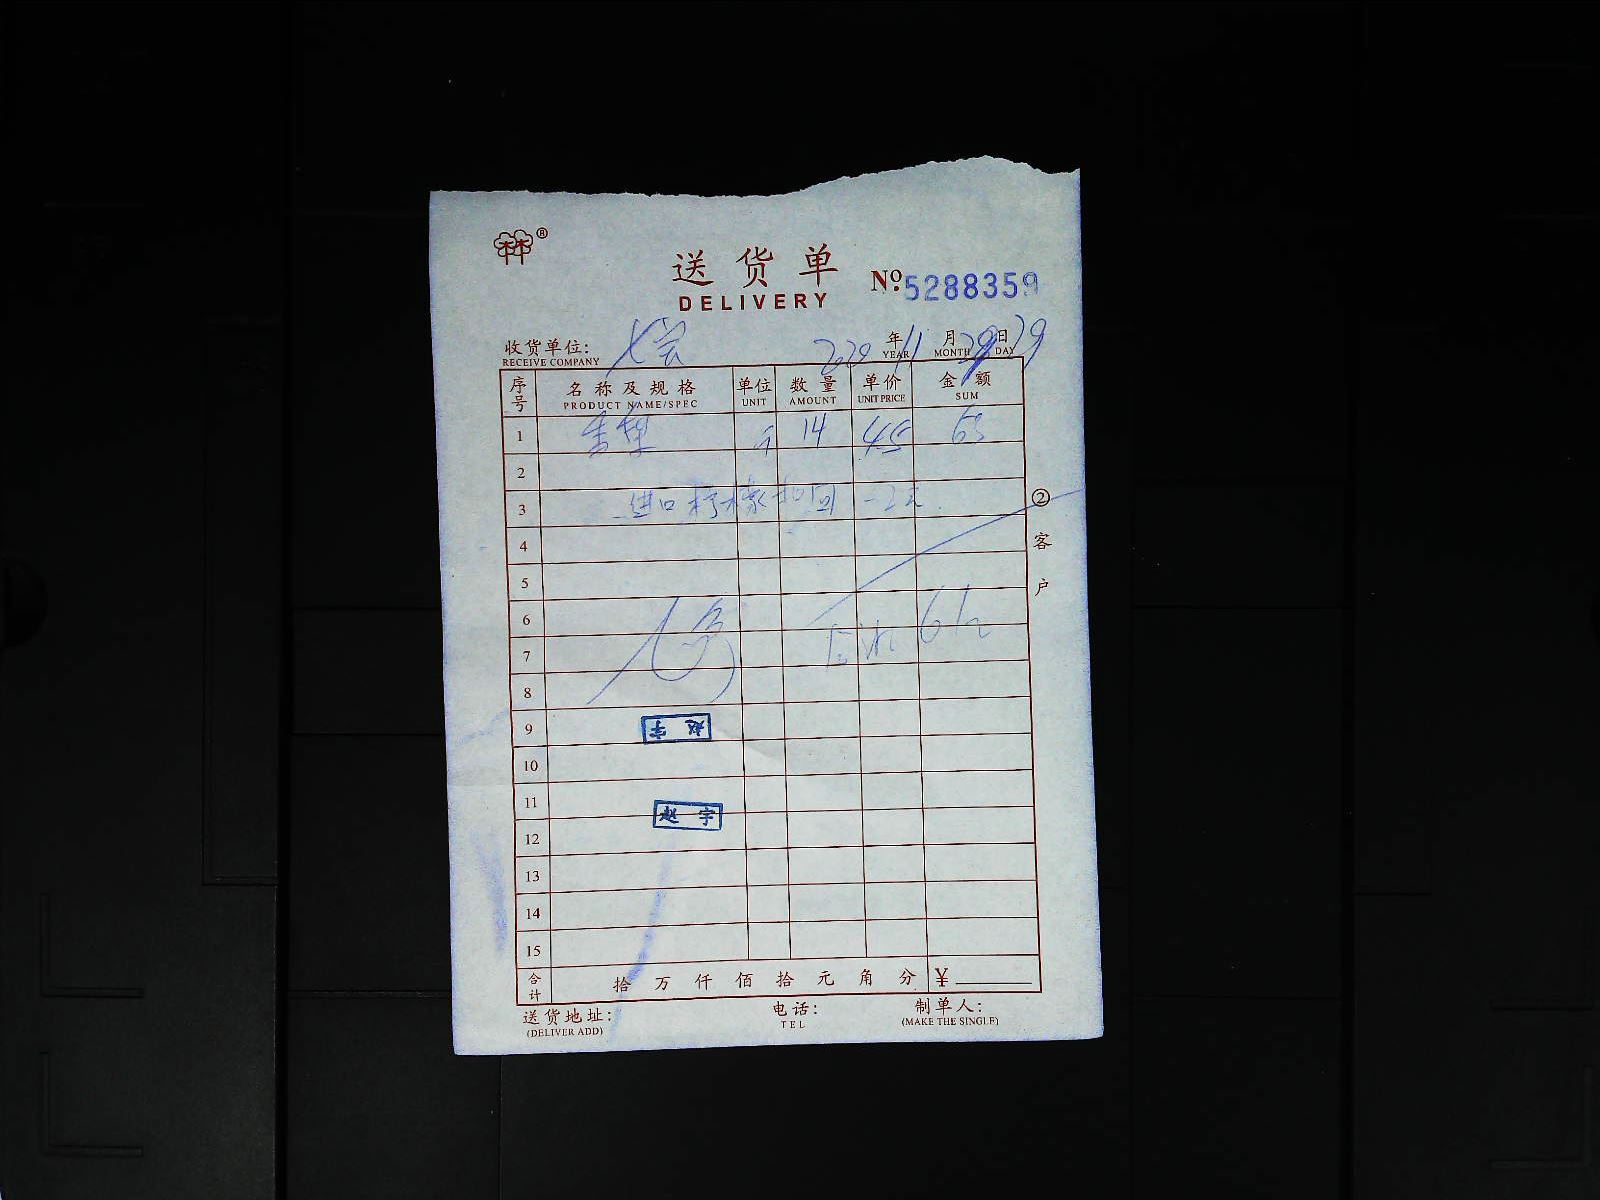 ®
送货单
DELIVERY
№:5288359
收货单位: 七会
RECEIVE COMPANY
2020年11月29日
YEAR MONTH DAY
序号 名称及规格 单位 数量 单价 金额
PRODUCT NAME/SPEC UNIT AMOUNT UNIT PRICE SUM
1 个 14 4.5 63
2
3 进口柠檬扣回-2元
4
5
6
7 61元
8
9 赵宇
10
11 赵宇
12
13
14
15
合计 拾万仟佰拾元角分 ¥
②客户
送货地址: 电话: 制单人:
(DELIVER ADD) TEL (MAKE THE SINGLE)